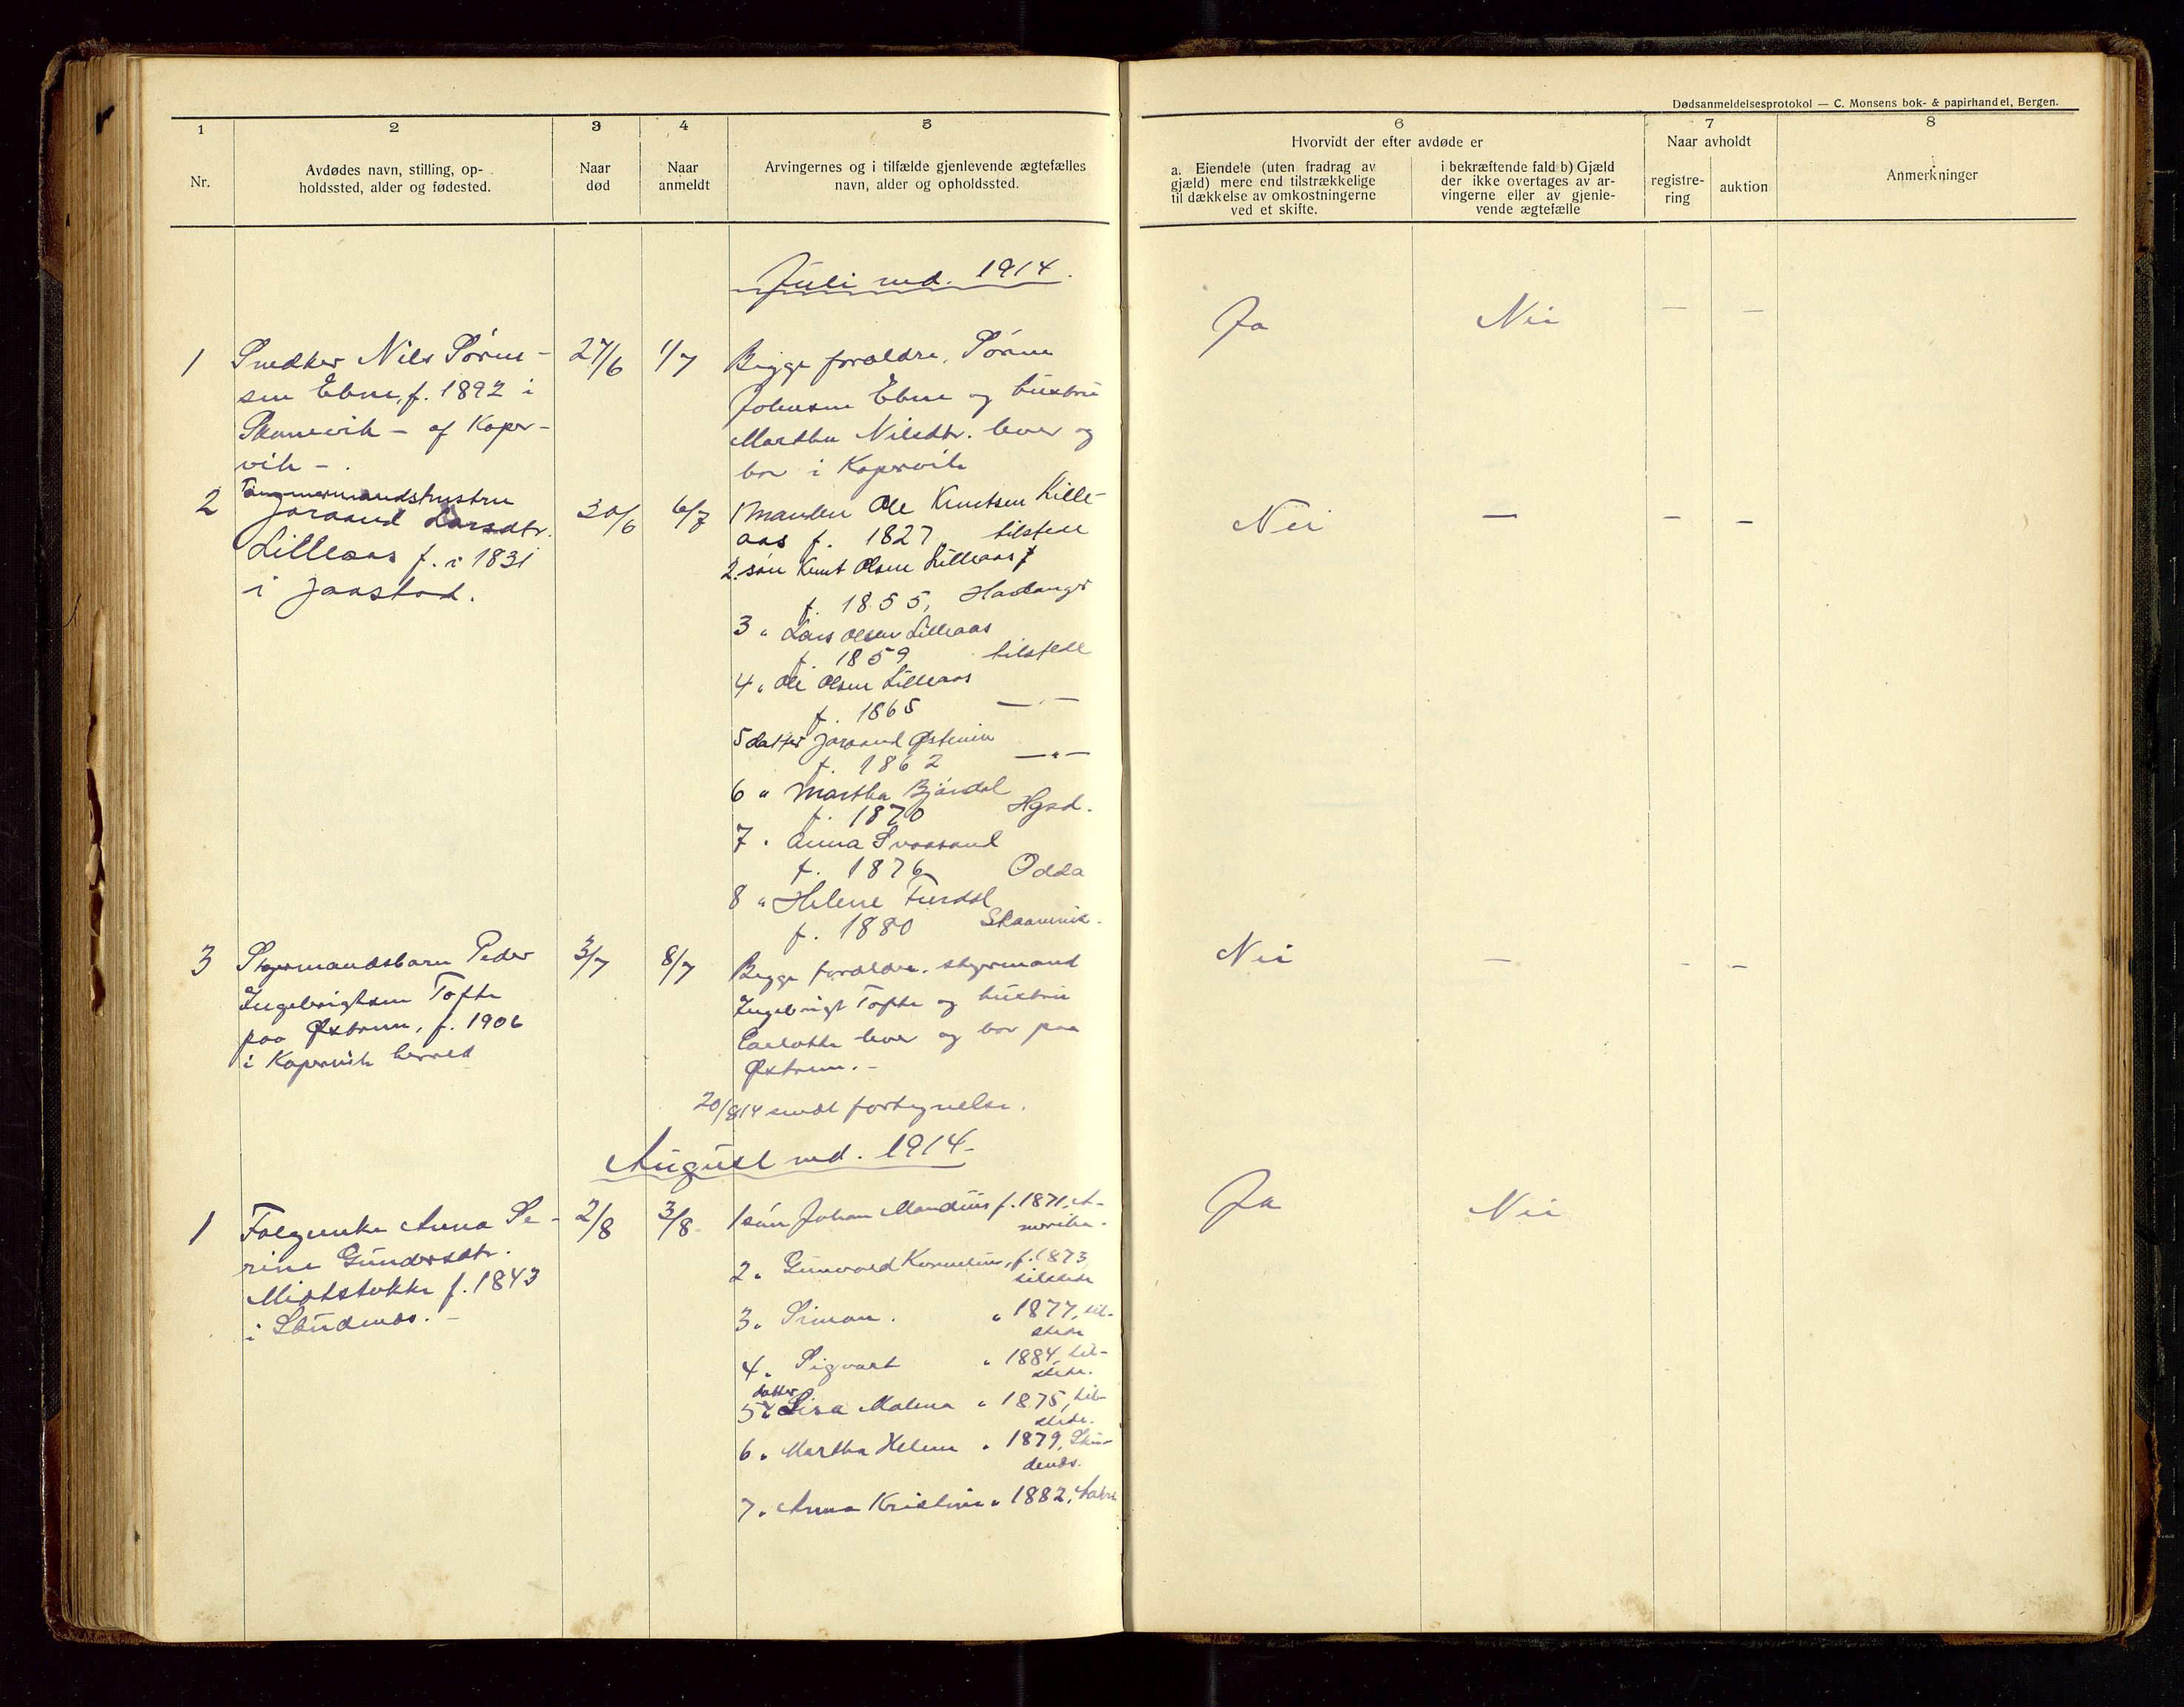 Dødsanmeldelsesprotokol — C. Monsens bok- & papirhandel, Bergen.
1 2 3 4 5 6 7 8
Nr.
Avdødes navn, stilling, op-
holdssted, alder og fødested.
Naar
død
Naar
anmeldt
Arvingernes og i tilfælde gjenlevende ægtefælles
navn, alder og opholdssted.
Hvorvidt der efter avdøde er
a. Eiendele (uten fradrag av
gjæld) mere end tilstrækkelige
til dækkelse av omkostningerne
ved et skifte.
i bekræftende fald b) Gjæld
der ikke overtages av ar-
vingerne eller av gjenle-
vende ægtefælle
Naar avholdt
registre-
ring
auktion
Anmerkninger
Juli md. 1914.
1
Snedker Nils Søren-
sen Ebne, f. 1892 i
Skonevik - af Koper-
vik -.
27/6
1/7
Begge forældre, Søren
Johnsen Ebne og hustru
Martha Nilsdtr. lever og
bor i Kopervik
Ja
Nei
— —
2
Tømmermandshustru
Joraand Larsdtr.
Lilleaas f. i 1831
i Jaastad.
30/6
6/7
1 Manden Ole Knutsen Lille-
aas f. 1827 tilstede
2. søn Knut Olsen Lilleaas
f. 1855, Hardanger
3 " Lars Olsen Lilleaas
f. 1859 tilstede
4 " Ole Olsen Lilleaas
f. 1865 — " —
5 datter Joraand Østenin
f. 1862 — " —
6 " Martha Bjørdal
f. 1870 Hgsd.
7 " Anna Svaasand
f. 1876 Odda
8 " Helene Furdal
f. 1880 Skaanevik.
Nei
—
— —
3
Styrmandsbarn Peder
Ingebrigtsen Tofte
paa Østrem, f. 1906
i Kopervik herred
3/7
8/7
Begge forældre. styrmand
Ingebrigt Tofte og hustru
Carlotte lever og bor paa
Østrem. -
Nei
—
— —
20/8 14 sendt fortegnelse.
August md. 1914.
1
Folgeenke Anna Se-
rine Gundersdtr.
Midtstokke f. 1843
i Skudenes. -
2/8
3/8
1 søn Johan Mandius f. 1871, A-
merika.
2 " Gunvald Kornelius, f. 1873,
tilstede
3 " Simon. " 1877, til-
stede
4 " Sigvart " 1884, til-
stede.
datter
5 " Lisa Malena " 1875, til-
stede.
6 " Martha Helene " 1879, Sku-
denes.
7 " Anna Kristine " 1882,
Ja
Nei